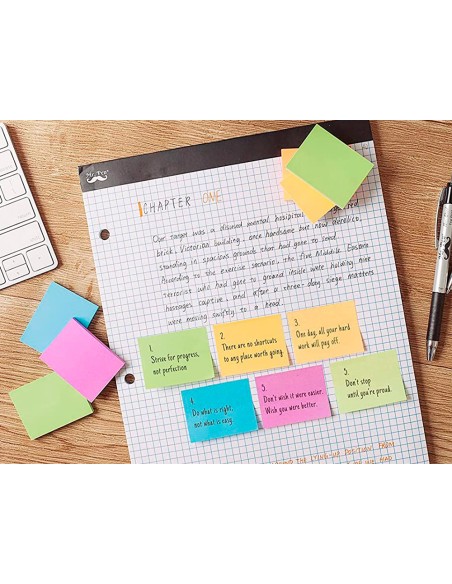 Mr. Pen
CHAPTER ONE
Our target was a disused mental hospital
brick, Victorian building, once handsome but now derelict,
standing in spacious grounds that had gone to seed.
According to the exercise scenario, the five Eastern
Terrorist who had gone to ground inside were holding nine
hostages captive, and after a three-day siege matters
were moving swiftly to a head.
1.
Strive for progress,
not perfection
2.
There are no shortcuts
to any place worth going.
3.
One day, all your hard
work will pay off.
4.
Do what is right,
not what is easy.
5.
Don't wish it were easier.
Wish you were better.
5.
Don't stop
until you're proud.
POSITION, FROM
HAD